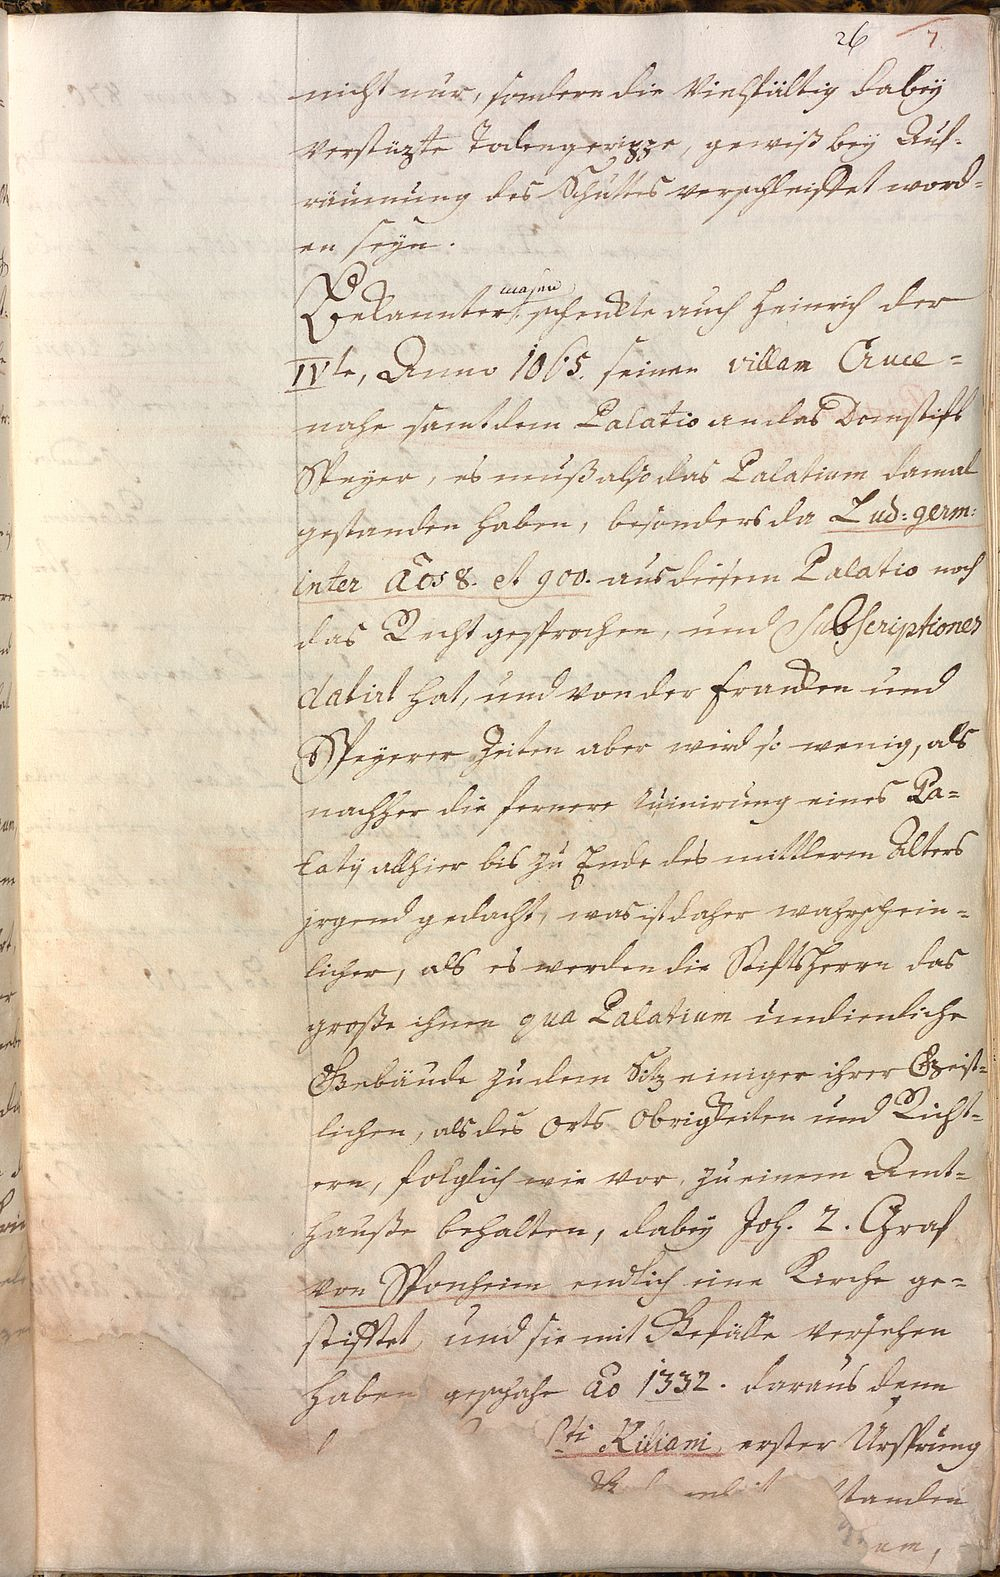 26 7.
nicht nur, sondern die vielfältig dabeÿ
verstüzte Todengerippe, gewiß beÿ Auf-
räumung des Schuttes verschleiffet word-
en seÿn.
Bekannter masen schenkte auch Heinrich der
IVte, Anno 1065. seinen villam Cruce-
nahe samt dem Palatio an das Domstift
Speÿer, es muß also das Palatium damal
gestanden haben, besonders da Lud: germ:
inter Aos 8. et 900. aus diesem Palatio noch
das Recht gesprochen, und subscriptiones
datirt hat, und von der Franken und
Speÿerer Zeiten aber wird so wenig, als
nachher die fernere Ruinirung eines Pa-
latÿ allhier bis zu Ende des mittleren Alters
jrgend gedacht, was ist daher wahrschein-
licher, als es werden die Stiftsherrn das
große ihnen qua Palatium undienliche
Gebäude zu dem Sitz einiger ihrer Geist-
lichen, als des Orts Obrigkeiten und Richt-
ern, folglich wie vor, zu einem Amt-
hauße behalten, dabeÿ Joh. 2. Graf
von Sponheim endlich eine Kirche ge-
stifftet, und sie mit Gefälle versehen
haben geschahe Ao 1332. daraus denn
Sti Kiliani erster Ursprung
standen